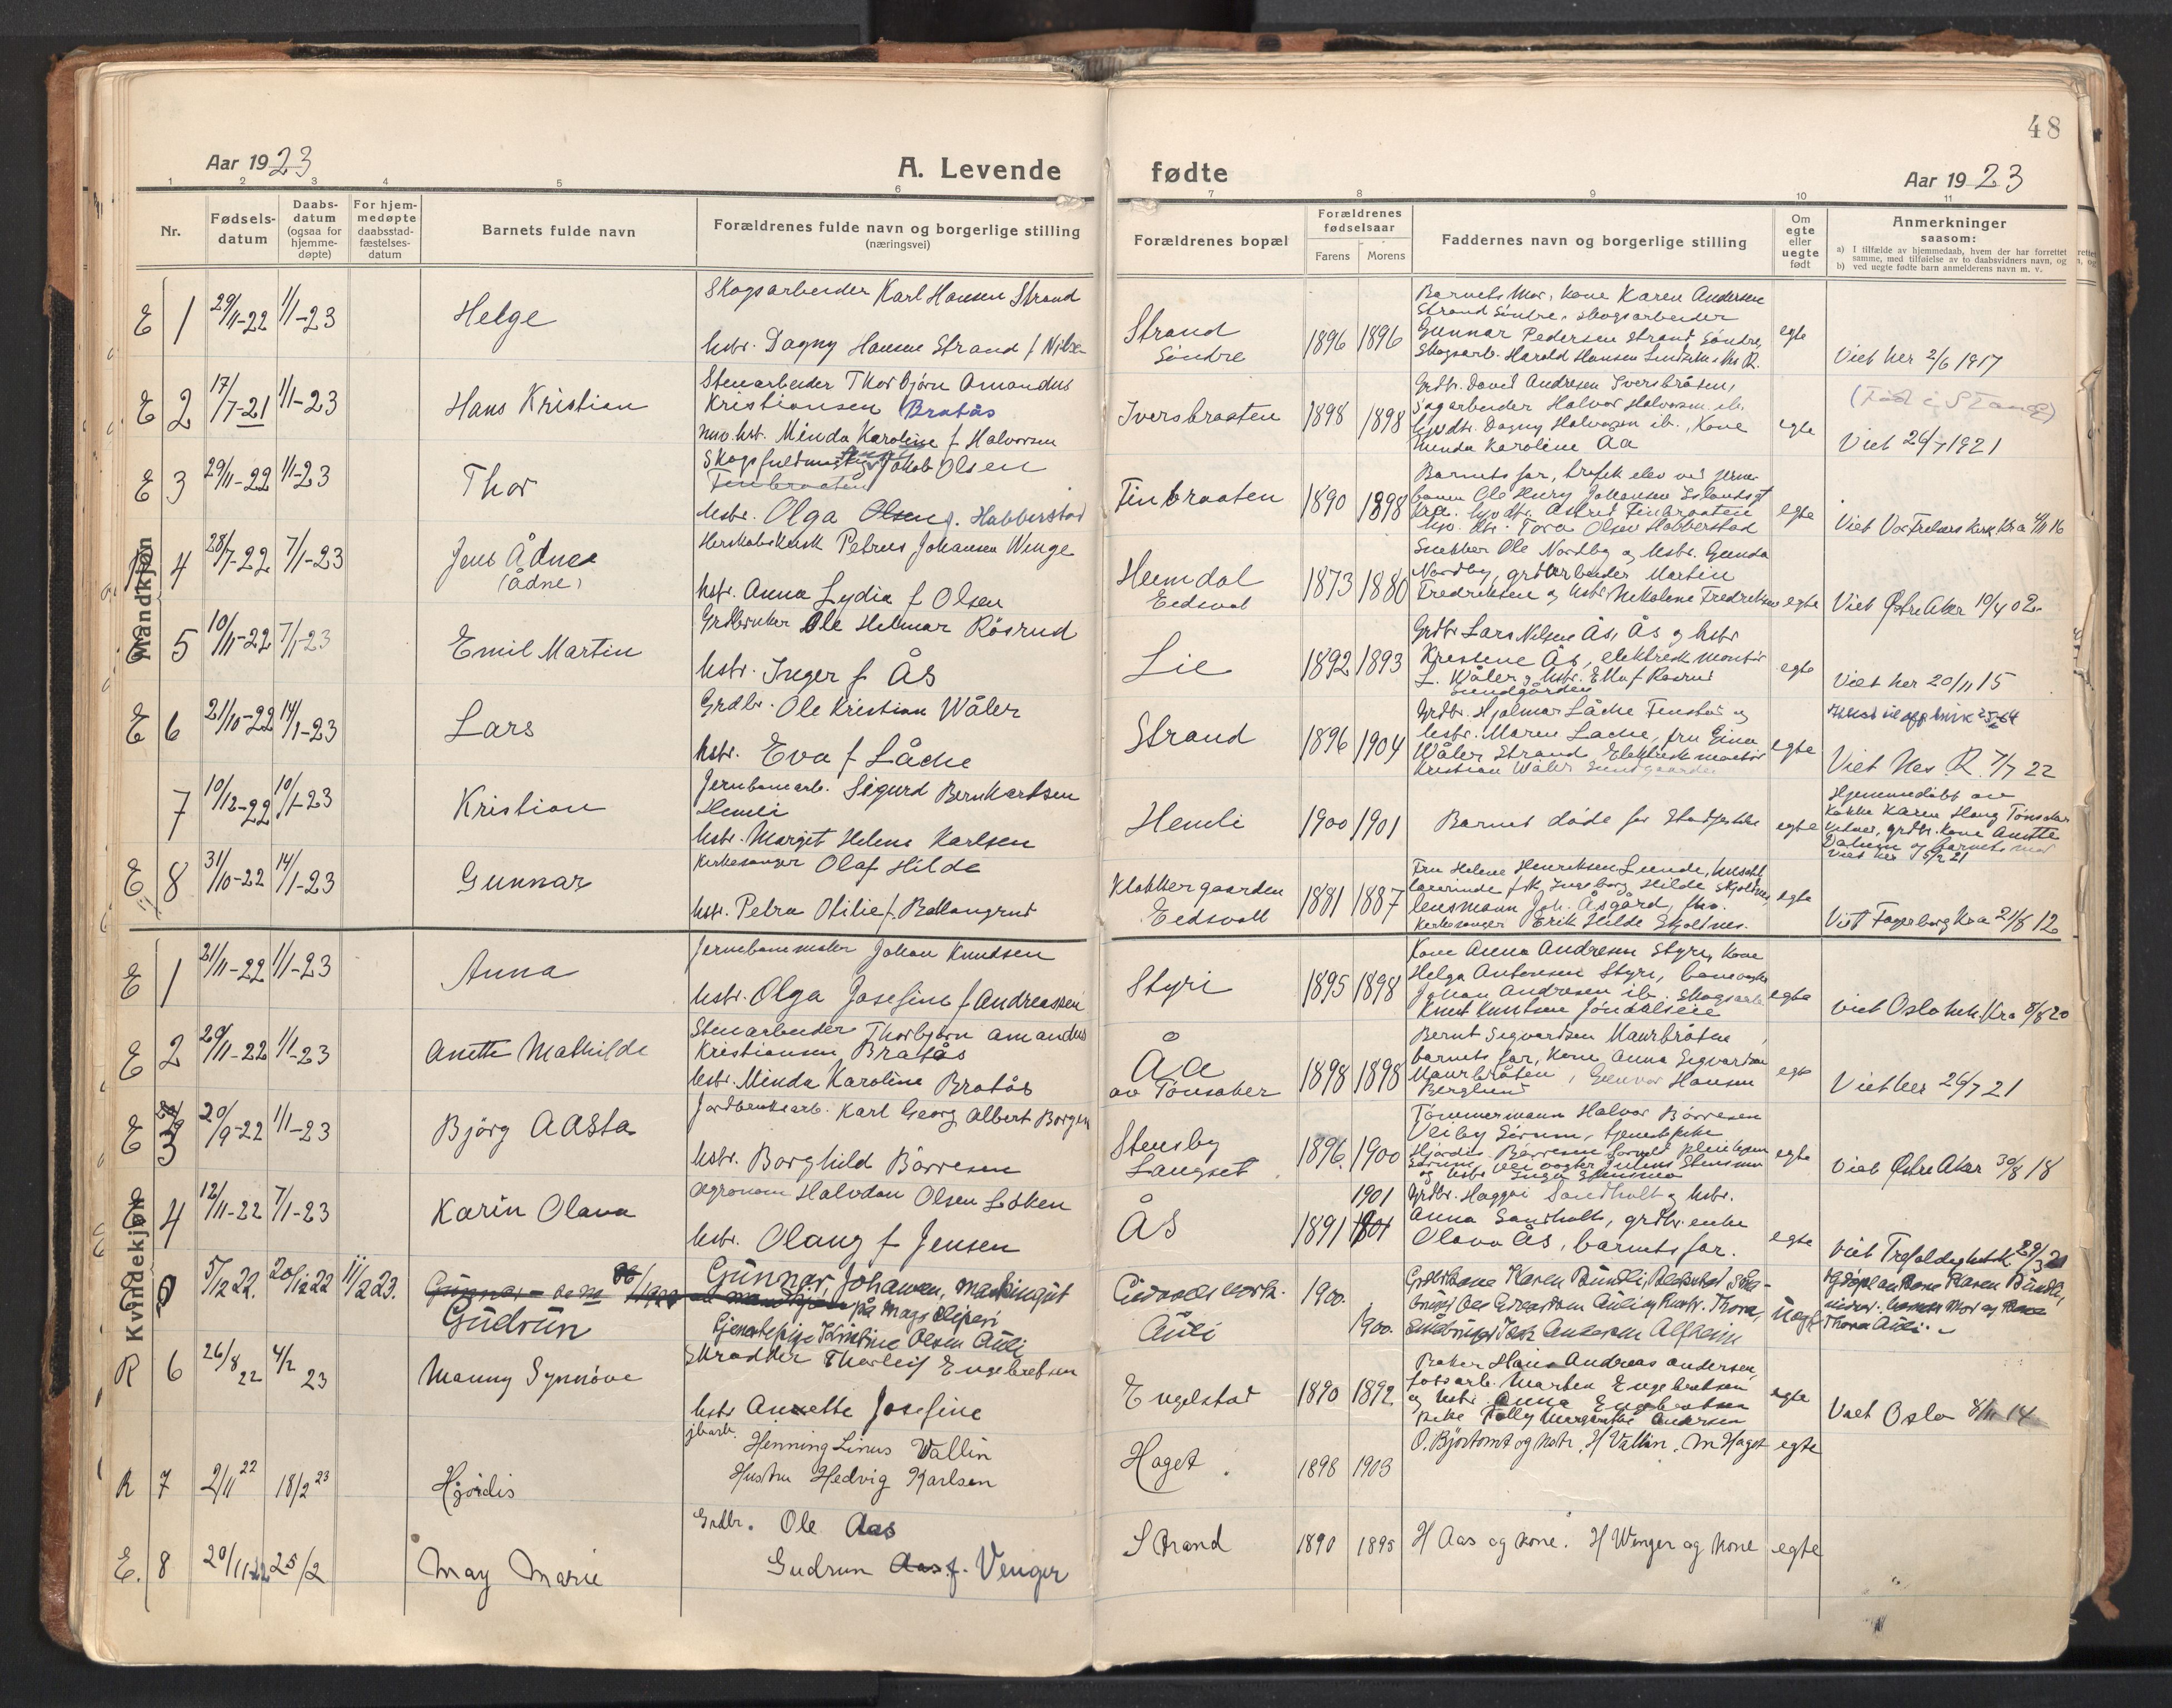 48
Aar 1923
A. Levende
fødte
Aar 1923
1 2 3 4 5 6 7 8 9 10 11
Nr.
Fødsels-
datum
Daabs-
datum
(ogsaa for
hjemme-
døpte)
For hjem-
medøpte
daabsstad-
fæstelses-
datum
Barnets fulde navn
Forældrenes fulde navn og borgerlige stilling
(næringsvei)
Forældrenes bopæl
Forældrenes
fødselsaar
Farens Morens
Faddernes navn og borgerlige stilling
Om
egte
eller
uegte
født
Anmerkninger
saasom:
a) I tilfælde av hjemmedaab, hvem der har forrettet
samme, med tilføielse av to daabsvidners navn, og
b) ved uegte fødte barn anmelderens navn m. v.
Mandkjøn
E 1 29/11-22 1/1-23 Helge
Skogsarbeider Karl Hansen Strand
hstr. Dagny Hansen Strand f Nilsen
Strand
Söndre
1896 1896
Barnets Mor, kone Karen Andersen
Strand Söndre, skogsarbeider
Gunnar Pedersen Strand Söndre,
Skogsarb. Harald Hansen
egte
Viet her 2/6 1917
E 2 17/7-21 1/1-23 Hans Kristian
Stenarbeider Thorbjörn Amandus
Kristiansen Bratås
hstr. Minda Karoline f Halvorsen
Iversbraaten
1898 1898
Grdbr. David Andresen Iversbråten,
Sagarbeider Halvor Halvorsen ib.
Dagny Halvorsen ib., Kone
Minda Karoline Aa
egte
(Född i Stange)
Viet 26/7 1921
E 3 29/11-22 1/1-23 Thor
Skogsfuldmægtig Jakob Olsen
Finbraaten
hstr. Olga Olsen f. Habberstad
Finbraaten
1890 1898
Barnets far, trafik elev ved jernbanen
Ole Henry Johansen
Astrid Finbraaten
Tora Olsen Habberstad
egte
Viet Vor Frelsers kirk Kra 4/11 16
4 28/7-22 7/1-23 Jens Ådne
(Ådne)
Herskabskusk Petrus Johansen Winge
hstr. Anna Lydia f Olsen
Heimdal
Eidsvol
1873 1880
Snekker Ole Nordby og hstr. Gunda
Nordby, grdarbeider Martin
Fredriksen og hstr. Nikoline Fredriksen
egte
Viet Østre Aker 19/4 02
5 10/11-22 7/1-23 Emil Martin
Grdbruker Ole Helmar Rösrud
hstr. Inger f Ås
Lie
1892 1893
Grdbr Lars Nilsen Ås, Ås og hstr
Kristine Ås, elektrisk montör
L. Wåler og hstr. Ella f Rösrud
Sundgården
egte
Viet her 20/11 15
E 6 21/10-22 14/1-23 Lars
Grdbr. Ole Kristian Wåler
hstr. Eva f Låche
Strand
1896 1904
Grdbr. Hjalmar Låche Finstad og
hstr. Maren Låche, fru Gina
Wåler Strand Elektrisk montör
Kristian Wåler Sundgaarden
egte
Viet Nes R. 7/7 22
7 10/12-22 10/1-23 Kristian
Jernbanearb. Sigurd Bernhardsen
Hemli
hstr. Margit Helene Karlsen
Hemli
1900 1901
Barnet döde för Stadfestelse
egte
Hjemmedöbt av
Kokke Karen Haug Tönsaker
Vidner, grdbr. kone Anette
Dalheim og barnets mor
Viet her 5/2 21
E 8 31/10-22 14/1-23 Gunnar
Kirkesanger Olaf Hilde
hstr. Petra Otilie f. Ballangrud
Klokkergaarden
Eidsvoll
1881 1887
Fru Helene Henriksen Lunde,
lærerinde frk. Ingeborg Hilde Skjoldnes,
lensmann Joh. Åsgård,
kirkesanger Erik Hilde Skjoldnes.
egte
Viet Fagerborg Kra 21/8 12
Kvindekjøn
E 1 21/11-22 1/1-23 Anna
Jernbanemaler Johan Knudsen
hstr. Olga Josefine f Andreassen
Styri
1895 1898
Kone Anna Andresen Styri, Kone
Helga Antonsen Styri, banevogter
Johan Andresen ib. Skogsarb.
Knut Knutsen Jöndalseie
egte
viet Oslo kirk. Kra 8/8 20
E 2 20/11-22 1/1-23 Anette Mathilde
Stenarbeider Thorbjörn Amandus
Kristiansen Bratås
hstr. Minda Karoline Bratås
Åa
av Tönsaker
1898 1898
Bernt Sigvartsen Maurbråten,
barnets far, kone Anna Sigvartsen
Maurbråten, Gunnar Hansen
Berglund
egte
Viet her 26/7 21
E 3 20/9-22 1/1-23 Björg Aasta
Jordbruksarb. Karl Georg Albert Borgen
hstr. Borghild Börresen
Stensby
Langset
1896. 1900
Tömmermann Halvor Börresen
Veiby Sörum, tjenestepike
Hjördis Börresen
egte
Viet Østre Aker 30/8 18
4 12/11-22 7/1-23 Karin Olava
Agronom Halvdan Olsen Löken
hstr. Olaug f Jensen
Ås
1891 1901
1901
Grdbr. Haggai Sandholt og hstr.
Anna Sandholt, grdbr. enke
Olava Ås, barnets far.
egte
Viet Trefoldighetsk. 29/3 21
5/12 22. 20/12 22 11/2 23. Gudrun
Gunnar Johansen, maskingut
på Mago sliperi
Tjenestepige Kristine Olsen Auli
Eidsvolls verk.
Auli
1900.
1900.
Karen Bundli
uegte
Thora Auli.
R 6 26/8 22 4/2 23 Manny Synnöve
Skrædder Thorleif Engebretsen
hstr Anette Josefine
Engelstad
1890 1892.
Baker Hans Andreas Andersen,
Morten Engebretsen
og hstr. Anna Engebretsen
pike Tolly Margrethe Andersen
egte
Viet Oslo 8/11 14
R 7 2/11 22 18/2 23 Hjördis
jbarb. Henning Linus Vallin
Hustru Hedvig Karlsen
Haget.
1898 1903
O. Björtomt og hstr. H Vallin. M Haget
egte
E. 8 20/11 22 25/2 May Marie
Grdbr. Ole Aas
Gudrun Aas f. Venger
Strand
1890 1895
H Aas og kone. H Wenger og kone
egte